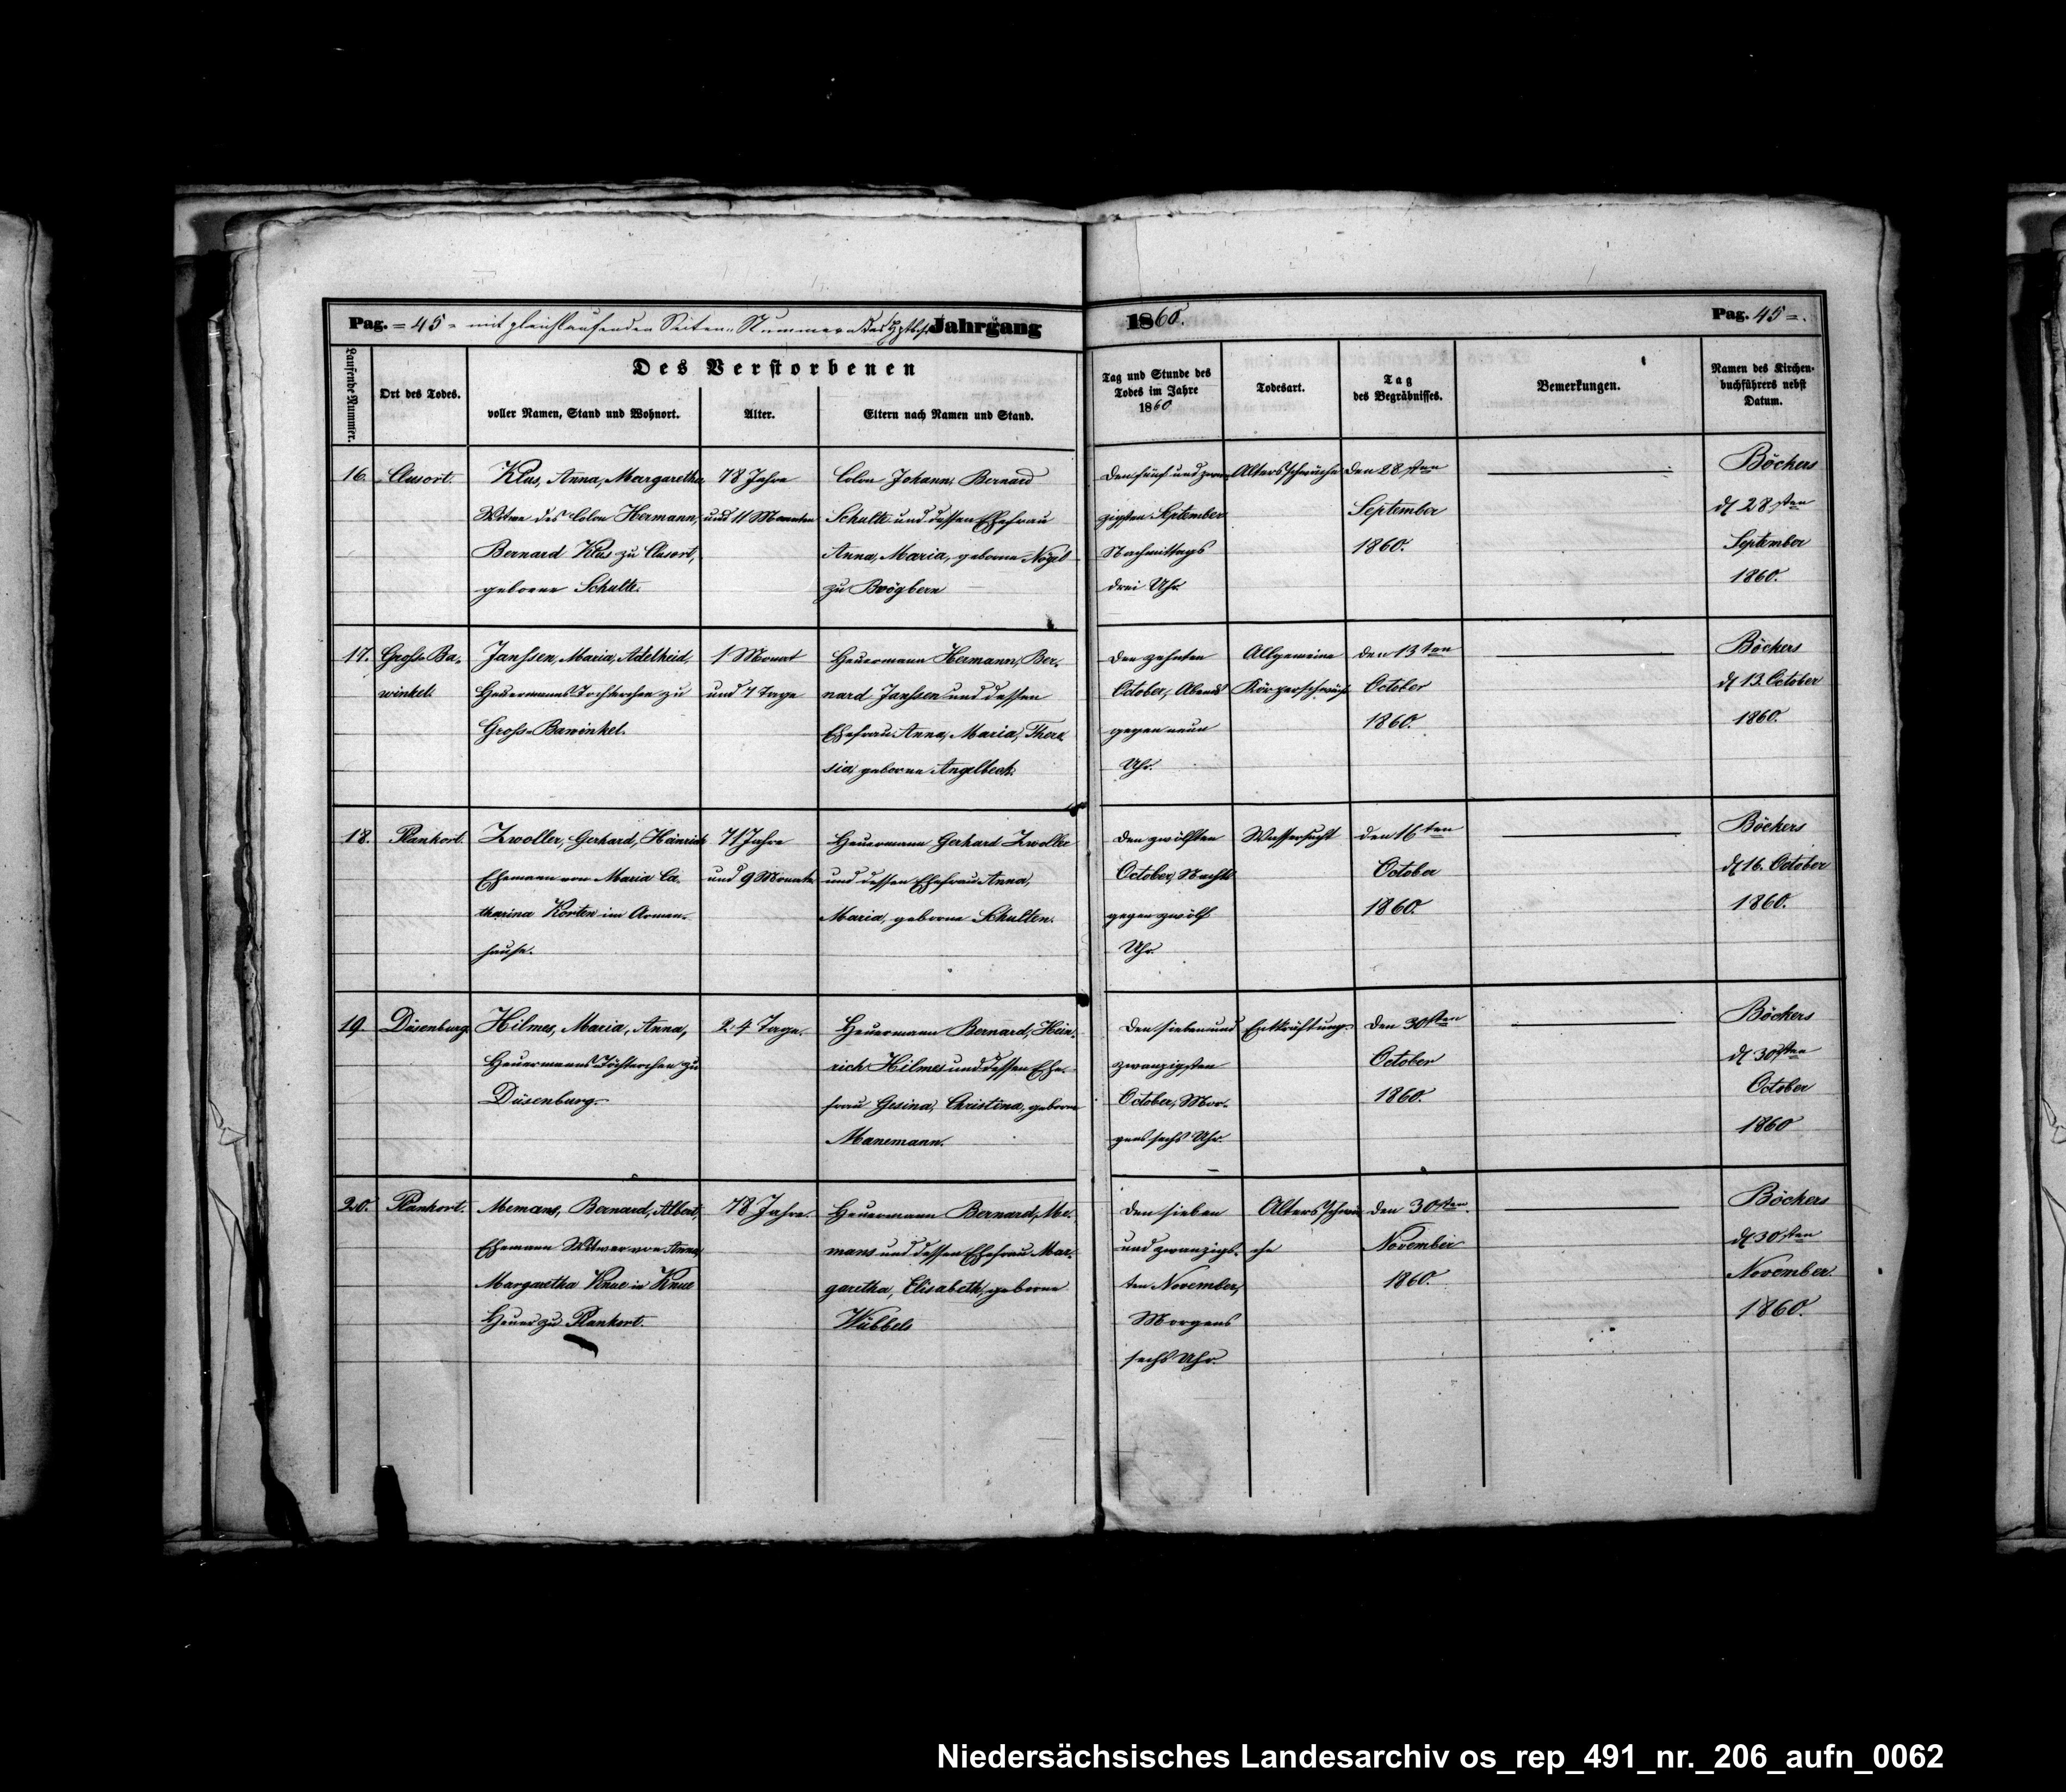 Pag. = 45 = mit gleichlaufenden Seiten-Nummern des Jahrgang 1860. Pag. 45 =.
Laufende Nummer.
Ort des Todes.
Des Verstorbenen
voller Namen, Stand und Wohnort.
Alter.
Eltern nach Namen und Stand.
Tag und Stunde des
Todes im Jahre
1860
Todesart.
Tag
des Begräbnisses.
Bemerkungen.
Namen des Kirchen-
buchführers nebst
Datum.
16.
Clusort.
Klus, Anna, Margaretha,
Witwe des Colon Hermann,
Bernard Klus zu Clusort,
geborne Schulte.
78 Jahre
und 11 Monaten
Colon Johann, Bernard
Schulte und dessen Ehefrau
Anna, Maria, geborne Nögel
zu Brögbern
den fünf und zwan-
zigsten September
Nachmittags
drei Uhr.
Altersschwäche
den 28sten
September
1860.
Böckers
d 28sten
September
1860.
17.
Gross-Ba-
winkel
Janssen, Maria, Adelheid,
Heuermanns Töchterchen zu
Gross-Bawinkel.
1 Monat
und 4 Tage
Heuermann Hermann, Ber-
nard Janssen und dessen
Ehefrau Anna, Maria, There-
sia, geborne Angelbeck.
den zehnten
October, Abends
gegen neun
Uhr.
Allgemeine
Körperschwäche
den 13ten
October
1860.
Böckers
d 13. October
1860.
18.
Plankort.
Zwoller, Gerhard, Heinrich
Ehemann von Maria Ca-
tharina Korten im Armen-
hause.
71 Jahre
und 9 Monate
Heuermann Gerhard Zwoller
und dessen Ehefrau Anna,
Maria, geborne Schulten.
den zwölften
October, Nachts
gegen zwölf
Uhr.
Wassersucht
den 16ten
October
1860.
Böckers
d 16. October
1860.
19.
Düsenburg.
Hilmes, Maria, Anna,
Heuermanns Töchterchen zu
Düsenburg.
24 Tage.
Heuermann Bernard, Hein-
rich Hilmes und dessen Ehe-
frau Gesina, Christina, geborne
Manemann.
den sieben und
zwanzigsten
October, Mor-
gens sechs Uhr.
Entkräftung.
den 30sten
October
1860.
Böckers
d 30sten
October
1860
20.
Plankort.
Memans, Bernard, Albert,
Ehemann Witwer von Anna
Margaretha Knue in Knue
Heuer zu Plankort.
78 Jahre.
Heuermann Bernard, Me-
mans und dessen Ehefrau Mar-
garetha, Elisabeth, geborne
Wübbels
den sieben
und zwanzigs-
ten November,
Morgens
sechs Uhr.
Altersschwä-
che
den 30sten
November
1860.
Böckers
d 30sten
November
1860.
Niedersächsisches Landesarchiv os_rep_491_nr._206_aufn_0062